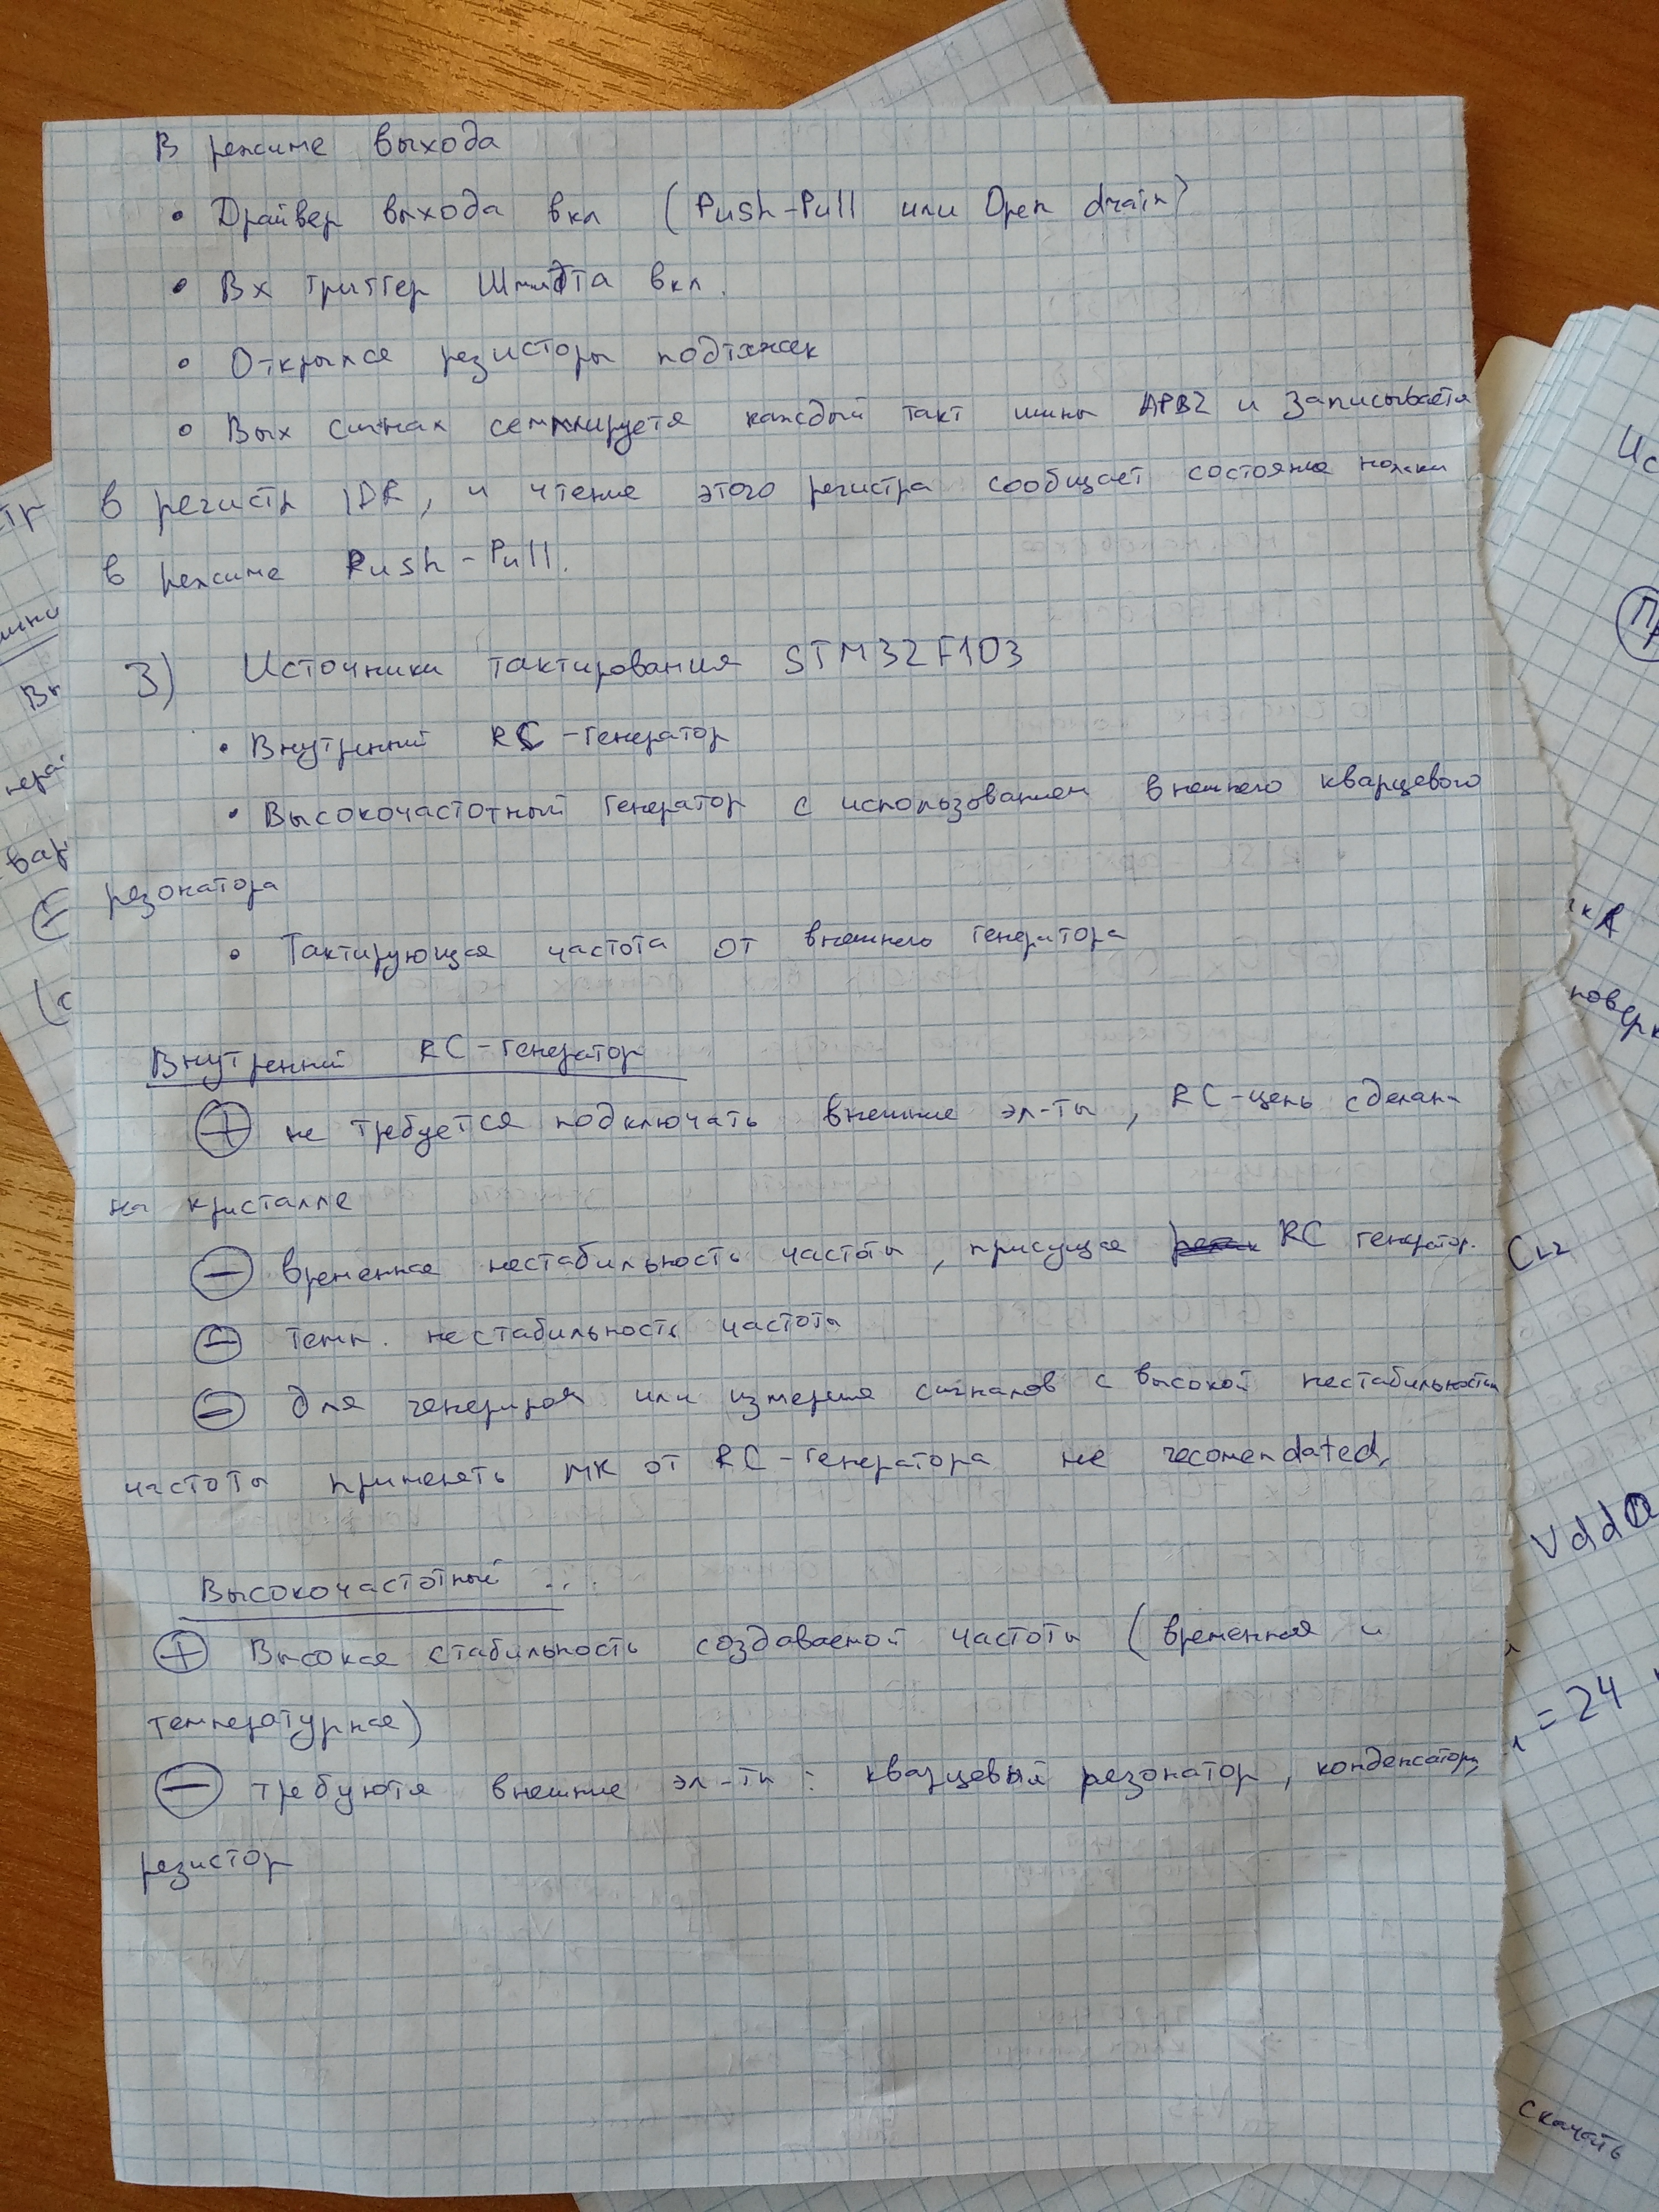 В режиме выхода
• Драйвер выхода вкл (Push-Pull или Open drain)
• Вх триггер Шмидта вкл.
• резисторы подтяжек
• Вых сигнал каждый такт шины APB2 и записывается
в регистр IDR, и чтение этого регистра сообщает состояние ножки
в режиме Push-Pull.
3) Источники тактирования STM32F103
• Внутренний RC-генератор
• Высокочастотный генератор с использованием внешнего кварцевого
резонатора
• Тактирующая частота от внешнего генератора
Внутренний RC-генератор
⊕ не требуется подключать внешние эл-ты, RC-цепь сделан-
на кристалле
⊖ временная нестабильность частоты, присущая RC генератор.
⊖ темп. нестабильность частоты
⊖ Для или сигналов с высокой нестабильностью
частоты применять МК от RC-генератора не recomendated.
Высокочастотный ...
⊕ Высокая стабильность создаваемой частоты (временная и
температурная)
⊖ требуются внешние эл-ты: кварцевый резонатор, конденсаторы,
резистор
Vdda
= 24
скачать